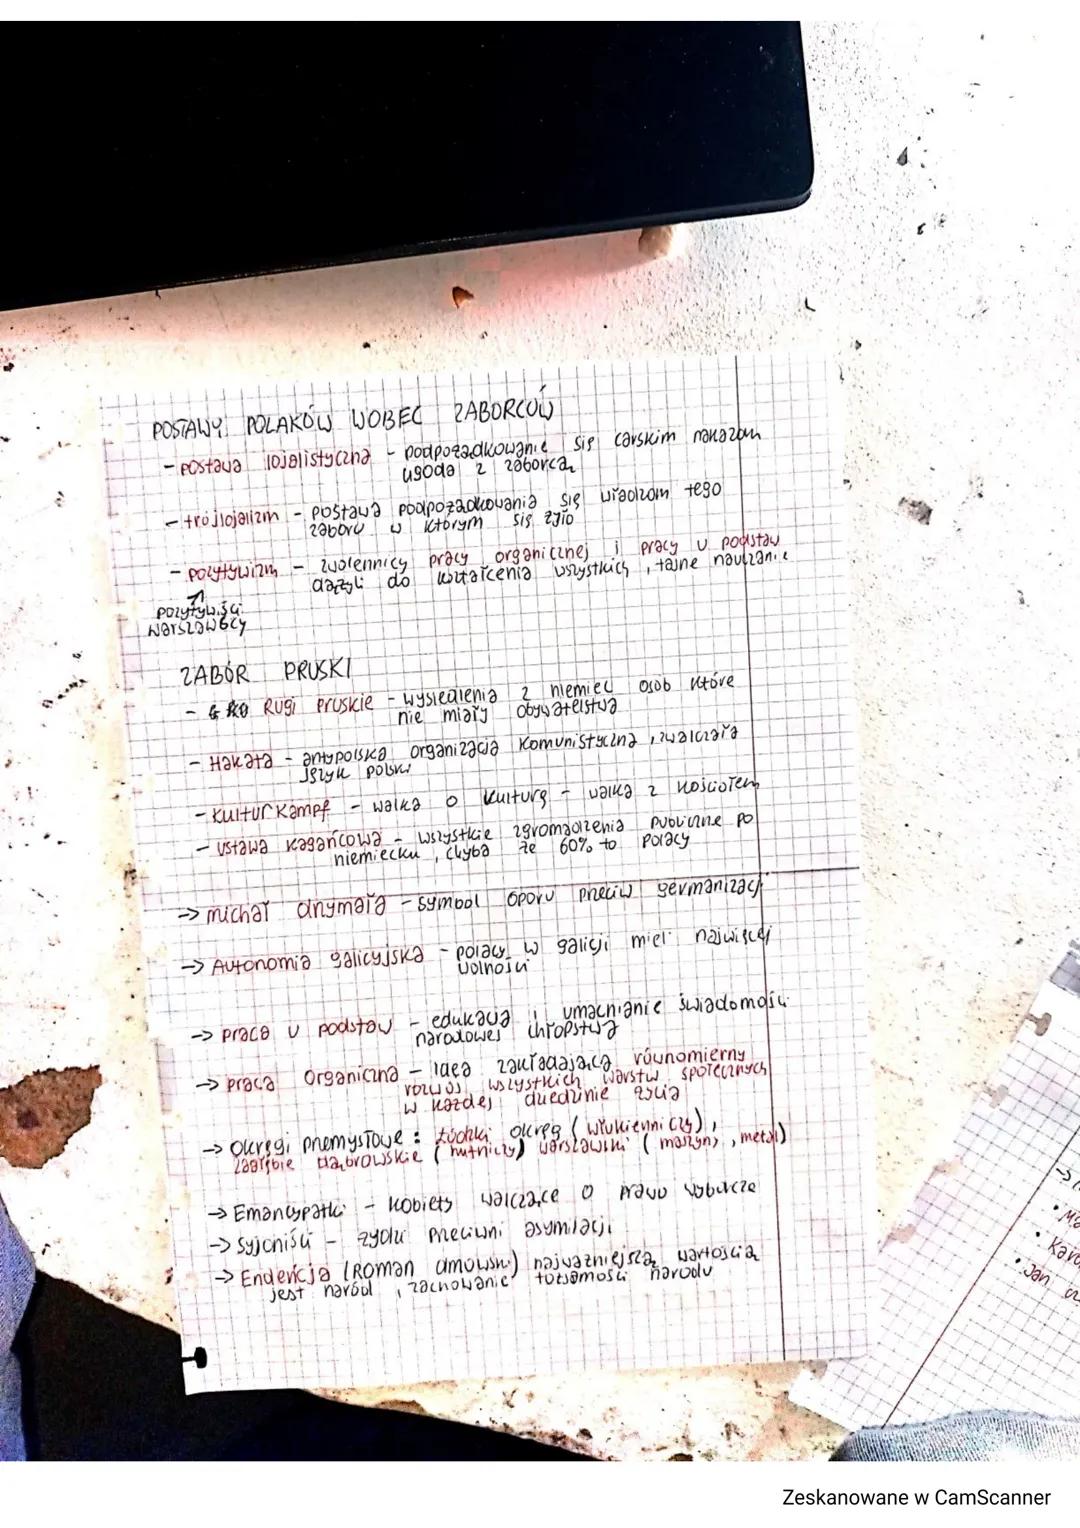 POSTAWY POLAKÓW WOBEC ZABORCÓW
- postawa lojalistyczna - podpoządkowanie się carskim nakazom
ugoda z zaborcą
- trójlojalizm - postawa podpoządkowania się władzom tego
zaboru w którym się żyło
- pozytywizm - zwolennicy pracy organicznej i pracy u podstaw
dążyli do kształcenia wszystkich, tajne nauczanie
pozytywiści
warszawscy
ZABÓR PRUSKI
- Rugi pruskie - wysiedlenia z niemiec osob które
nie miały obywatelstwa
- Hakata - antypolska organizacja komunistyczna, zwalczała
język polski
- kulturkampf - walka o kulturę - walka z kościołem
- ustawa kagańcowa - wszystkie zgromadzenia publiczne po
niemiecku, chyba że 60% to polacy
-> michał drzymała - symbol oporu przeciw germanizacji
-> Autonomia galicyjska - polacy w galicji mieli najwięcej
wolności
-> praca u podstaw - edukacja i umacnianie świadomości
narodowej chłopstwa
-> praca organiczna - idea zakładająca równomierny
rozwój wszystkich warstw społecznych
w każdej dziedzinie życia
-> okręgi przemysłowe: łódzki okręg (włukienniczy),
zagłębie dąbrowskie (hutniczy) warszawski (maszyny, metal)
-> Emancypatki - kobiety walczące o prawo wyborcze
-> syjoniści - żydzi przeciwni asymilacji
-> Endencja (Roman dmowski) najważniejszą wartością
jest naród, zachowanie tożsamości narodu
->
• Ma
• Karo
• Jan
Zeskanowane w CamScanner